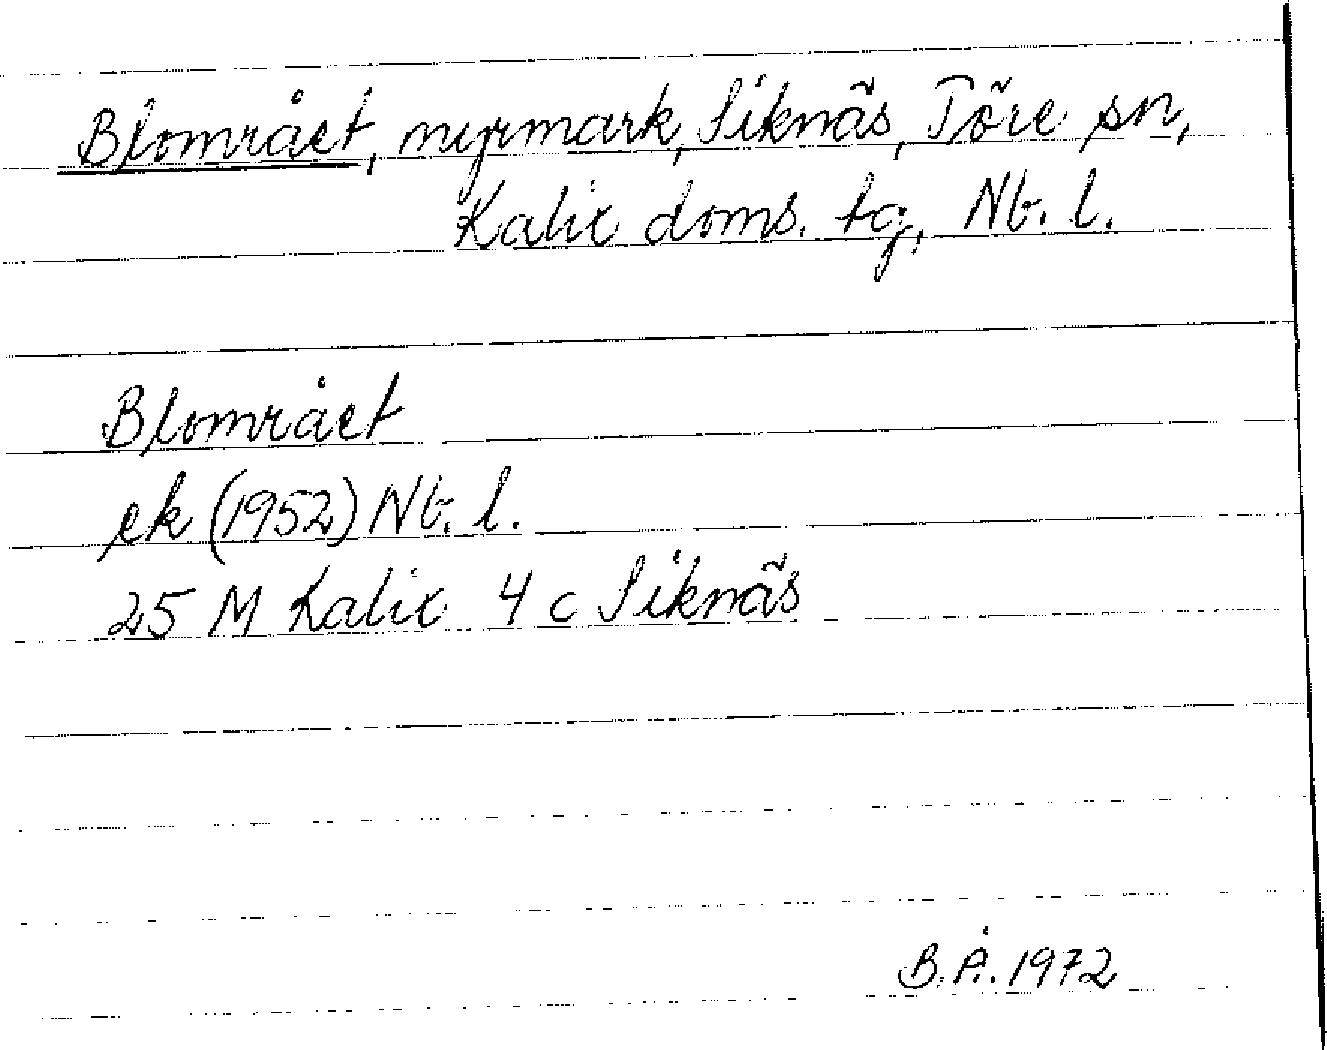 Blområet, myrmark, Siknäs, Töre sn,
Kalix doms. tg, Nb. l.
Blområet
ek (1952) Nb. l.
25 M Kalix 4 c Siknäs
B.Å. 1972